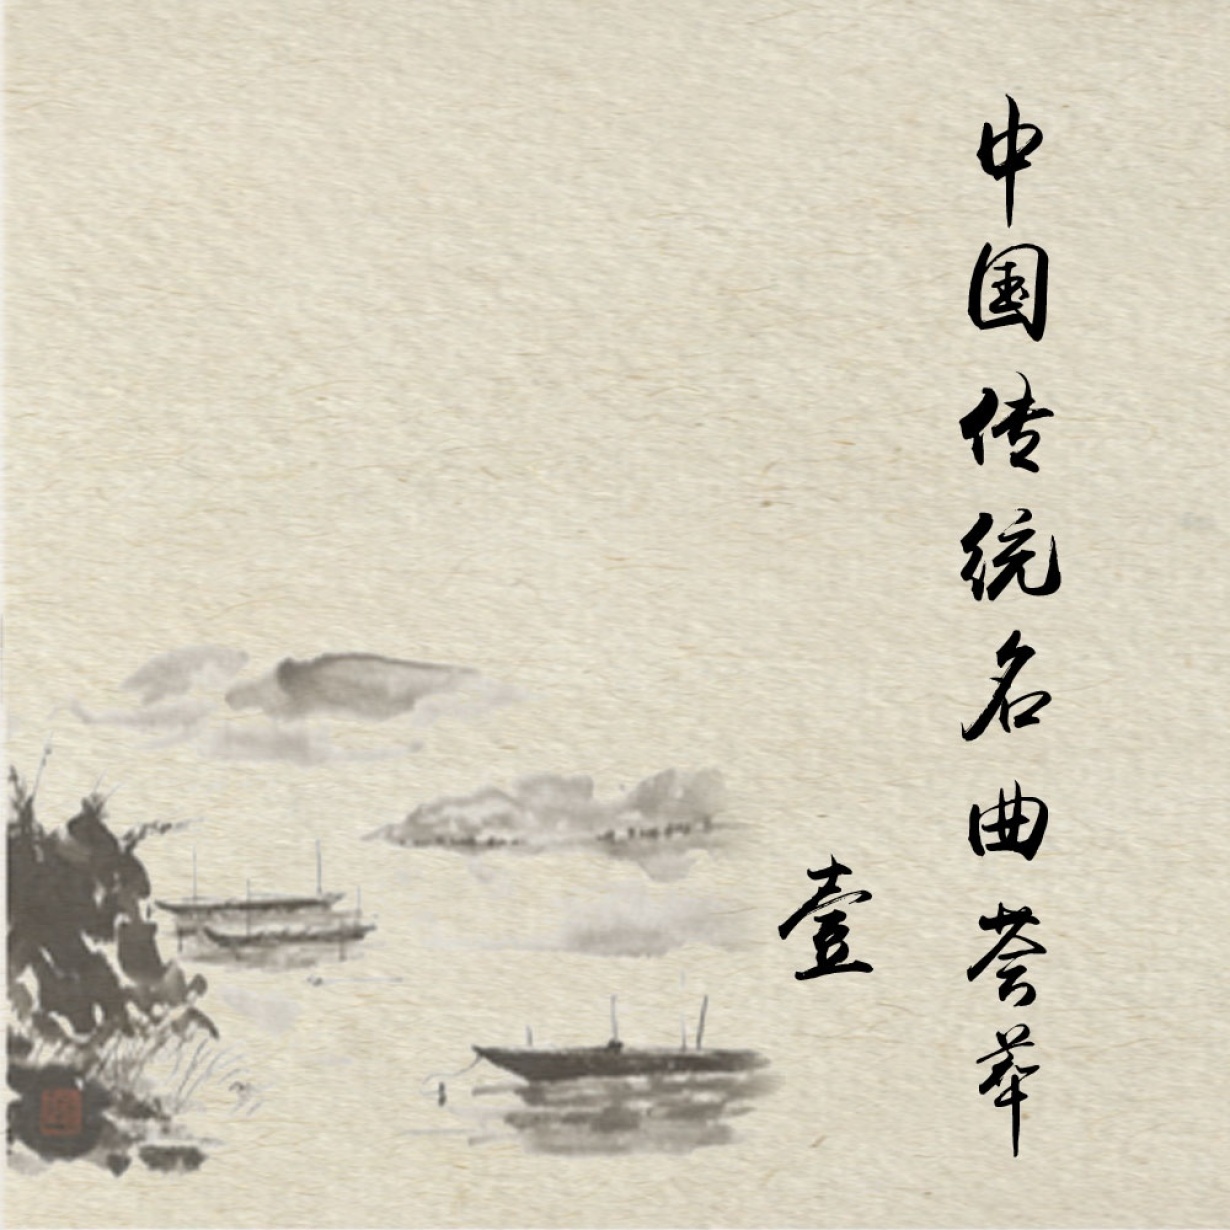 中国传统名曲荟萃
壹